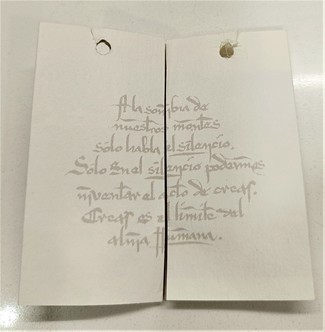 A la sombra de
nuestros montes
sólo habla el silencio.
Sólo en el silencio podemos
inventar el acto de crear.
Crear es el límite del
alma Humana.